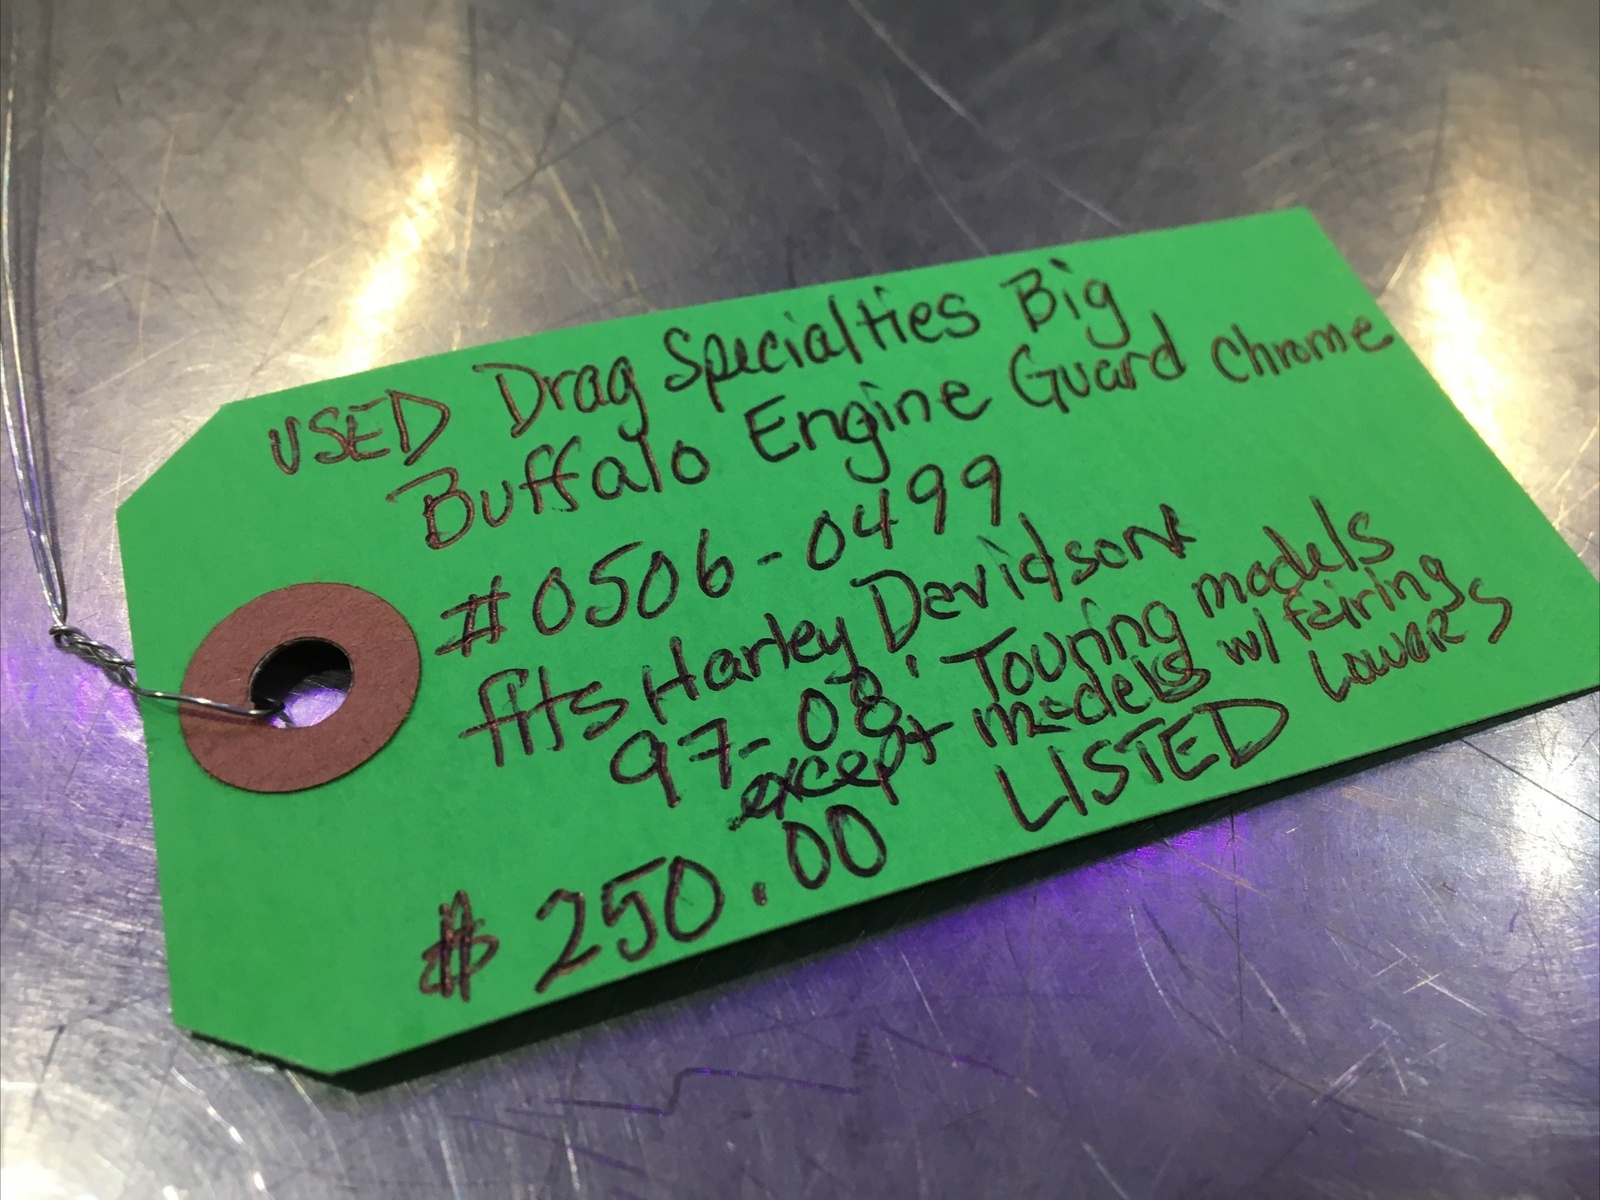 USED Drag Specialties Big
Buffalo Engine Guard Chrome
#0506-0499
fits Harley Davidson
97-08 Touring models
except models w/ fairing
Lowers
$250.00 LISTED